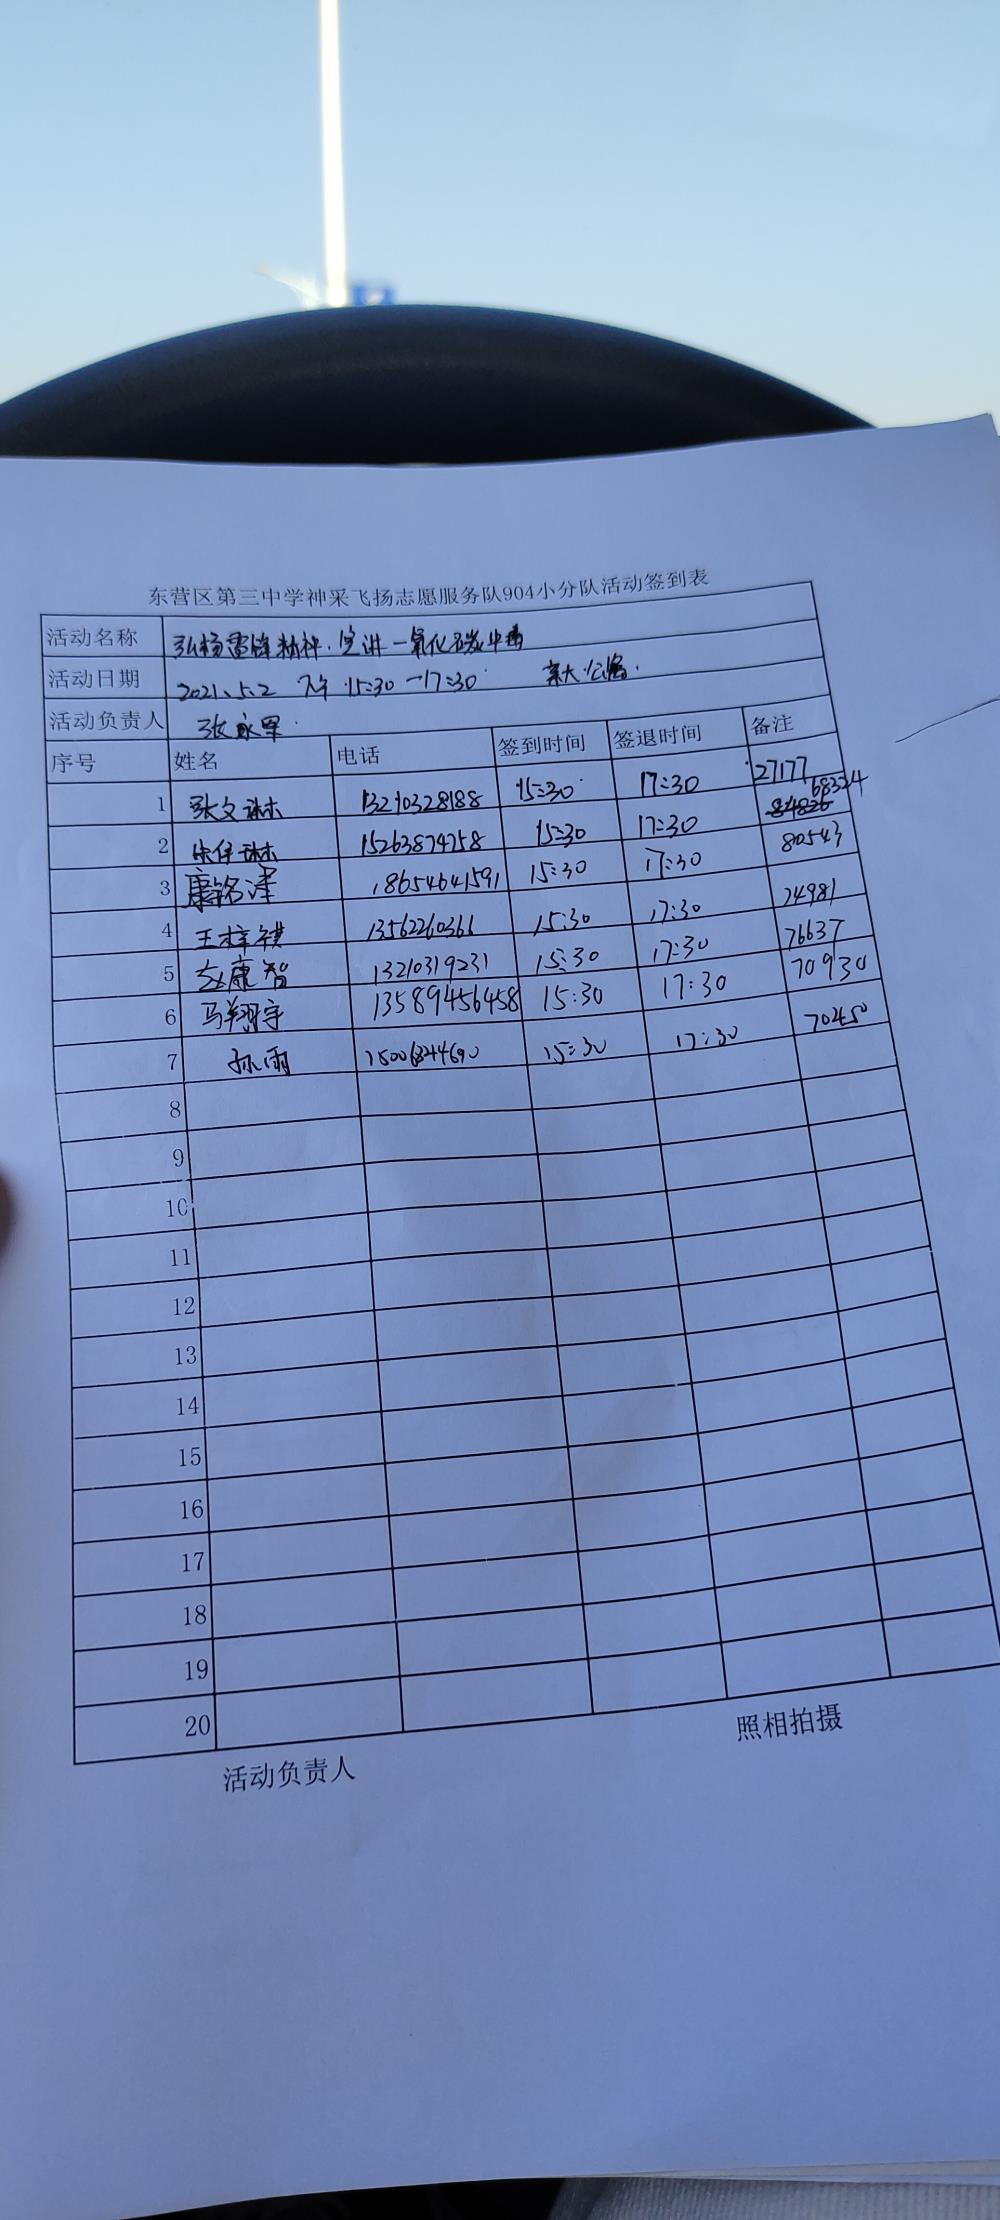 东营区第三中学神采飞扬志愿服务队904小分队活动签到表
活动名称 弘扬雷锋精神.宣讲一氧化碳中毒
活动日期 2021.5.2 下午 15:30一17:30
活动负责人 张永军
序号 姓名 电话 签到时间 签退时间 备注
1 张文琳 13210328188 15:30 17:30 27177
2 宋佳琳 15263874758 15:30 17:30 68324
3 康铭津 18654641591 15:30 17:30 80543
4 王梓祺 13562260366 15:30 17:30 74981
5 赵康智 13210319231 15:30 17:30 76637
6 马翔宇 13589456458 15:30 17:30 70930
7 孙雨 15:30 17:30 70450
8
9
10
11
12
13
14
15
16
17
18
19
20
活动负责人 照相拍摄